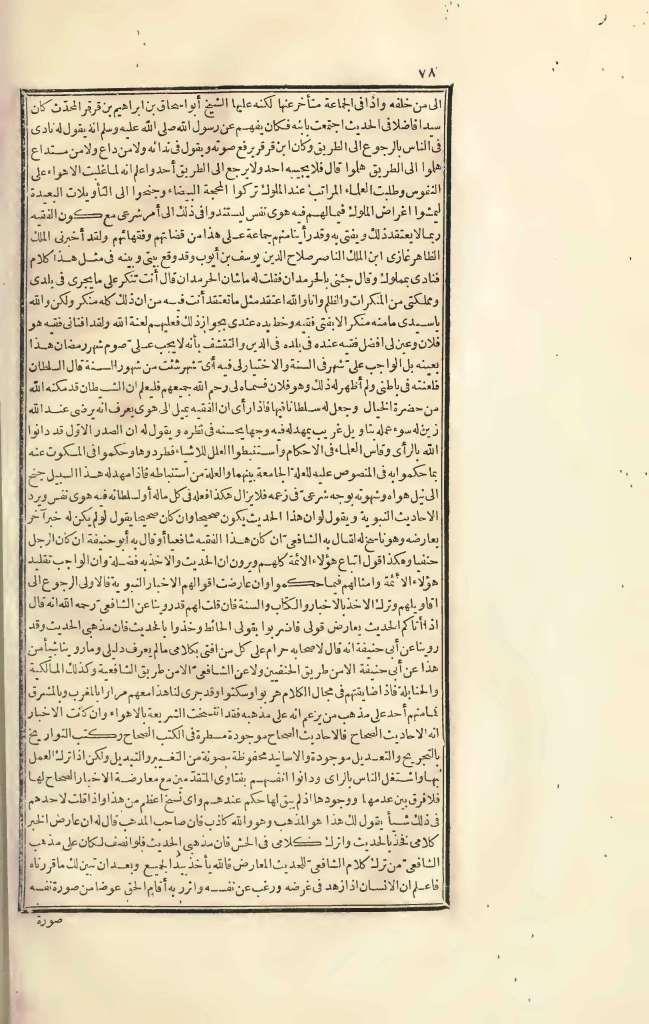 ٧٨
الى من خلفه واذا فى الجماعة متأخر عنها لكنه عليها الشيخ أبو اسحاق بن ابراهيم بن قرقر المحدّث كان
سيدا فاضلا فى الحديث اجتمعت بابنه فكان يفهم عن رسول الله صلى الله عليه وسلم انه يقول له نادى
فى الناس بالرجوع الى الطريق وكان ابن قرقر يرفع صوته ويقول فى ندائه ولا من داع ولا من مستداع
هلموا الى الطريق هلموا قال فلا يجيبه احد ولا يرجع الى الطريق أحد واعلم انه لما غلبت الاهواء على
النفوس وطلبت العلماء المراتب عند الملوك تركوا المحجة البيضاء وجنحوا الى التأويلات البعيدة
ليمشوا اغراض الملوك فيما لهم فيه هوى نفس ليستندوا فى ذلك الى أمر شرعى مع كون الفقيه
ربما لا يعتقد ذلك ويفتى به وقد رأينا منهم جماعة على هذا من قضاتهم وفقهائهم ولقد أخبرنى الملك
الظاهر غازى ابن الملك الناصر صلاح الدين يوسف بن أيوب وقد وقع بينى وبينه فى مثل هذا كلام
فنادى بمملوك وقال جئنى بالحرمدان فقلت له ما شان الحرمدان قال أنت تنكر على ما يجرى فى بلدى
ومملكتى من المنكرات والظلم وانا والله اعتقد مثل ما تعتقد أنت فيه من ان ذلك كله منكر ولكن والله
ياسيدى ما منه منكر الا بفتى فقيه وخط يده عندى بجواز ذلك فعليهم لعنة الله ولقد افتانى فقيه هو
فلان وعين لى افضل فقيه عنده فى بلده فى الدين والتقشف بأنه لا يجب علىّ صوم شهر رمضان هذا
بعينه بل الواجب علىّ شهر فى السنة والاختيار لى فيه أىّ شهر شئت من شهور السنة قال السلطان
فلعنته فى باطنى ولم أظهر له ذلك وهو فلان فسماه لى رحم الله جميعهم فليعلم ان الشيطان قد مكنه الله
من حضرة الخيال وجعل له سلطانا فيها فاذا رأى ان الفقيه يميل الى هوى يعرف انه يردى عند الله
زين له سوء عمله بتاويل غريب يمهد له فيه وجها يحسنه فى نظره ويقول له ان الصدر الاوّل قد دانوا
الله بالرأى وقاس العلماء فى الاحكام واستنبطوا العلل للاشياء فطردوها وحكموا فى المسكوت عنه
بما حكموا به فى المنصوص عليه للعلة الجامعة بينهما والعلة من استنباطه فاذا مهد له هذا السبيل جنح
الى نيل هواه وشهوته بوجه شرعىّ فى زعمه فلا يزال هكذا فعله فى كل ماله أو لسلطانه فيه هوى نفس ويرد
الاحاديث النبوية ويقول لو ان هذا الحديث يكون صحيحا وان كان صحيحا يقول لو لم يكن له خبر آخر
يعارضه وهو ناسخ له لقال به الشافعىّ ان كان هذا الفقيه شافعيا أو قال به أبو حنيفة ان كان الرجل
حنفيا وهكذا قول اتباع هؤلاء الائمة كلهم ويرون ان الحديث والاخذ به فضله وان الواجب تقليد
هؤلاء الأئمة وامثالهم فيما حكموا وان عارضت اقوالهم الاخبار النبوية فالاولى الرجوع الى
اقاويلهم وترك الاخذ بالاخبار والكتاب والسنة فان قلت لهم قد روينا عن الشافعىّ رحمه الله انه قال
اذا أتاكم الحديث يعارض قولى فاضربوا بقولى الحائط وخذوا بالحديث فان مذهبى الحديث وقد
روينا عن أبى حنيفة انه قال لاصحابه حرام على كل من افتى بكلامى مالم يعرف دليلى وما روينا شيأ من
هذا عن أبى حنيفة الا من طريق الحنفيين ولا عن الشافعىّ الا من طريق الشافعية وكذلك المالكية
والحنابلة فاذا ضايقتهم فى مجال الكلام هربوا وسكتوا وقد جرى لنا هذا معهم مرارا بالمغرب وبالمشرق
فما منهم أحد على مذهب من يزعم انه على مذهبه فقد انتسخت الشريعة بالاهواء وان كانت الاخبار
انه الاحاديث الصحاح فالاحاديث الصحاح موجودة مسطرة فى الكتب الصحاح وكتب التواريخ
بالتجريح والتعديل موجودة والاسانيد محفوظة مصونة من التغيير والتبديل ولكن اذا ترك العمل
بها واشتغل الناس بالراى ودانوا انفسهم بفتاوى المتقدّمين مع معارضة الاخبار الصحاح لها
فلا فرق بين عدمها ووجودها اذ لم يبق لها حكم عندهم وأى نسخ اعظم من هذا واذا قلت لاحدهم
فى ذلك شيأ يقول لك هذا هو المذهب وهو والله كاذب فان صاحب المذهب قال له ان عارض الخبر
كلامى فخذ بالحديث واترك كلامى فى الحش فان مذهبى الحديث فلو انصف لكان على مذهب
الشافعىّ من ترك كلام الشافعىّ للحديث المعارض فالله يأخذ بيد الجميع وبعد ان تبين لك ما قررناه
فاعلم ان الانسان اذا زهد فى غرضه ورغب عن نفسه واثر ربه أقام له الحق عوضا من صورة نفسه
صورة